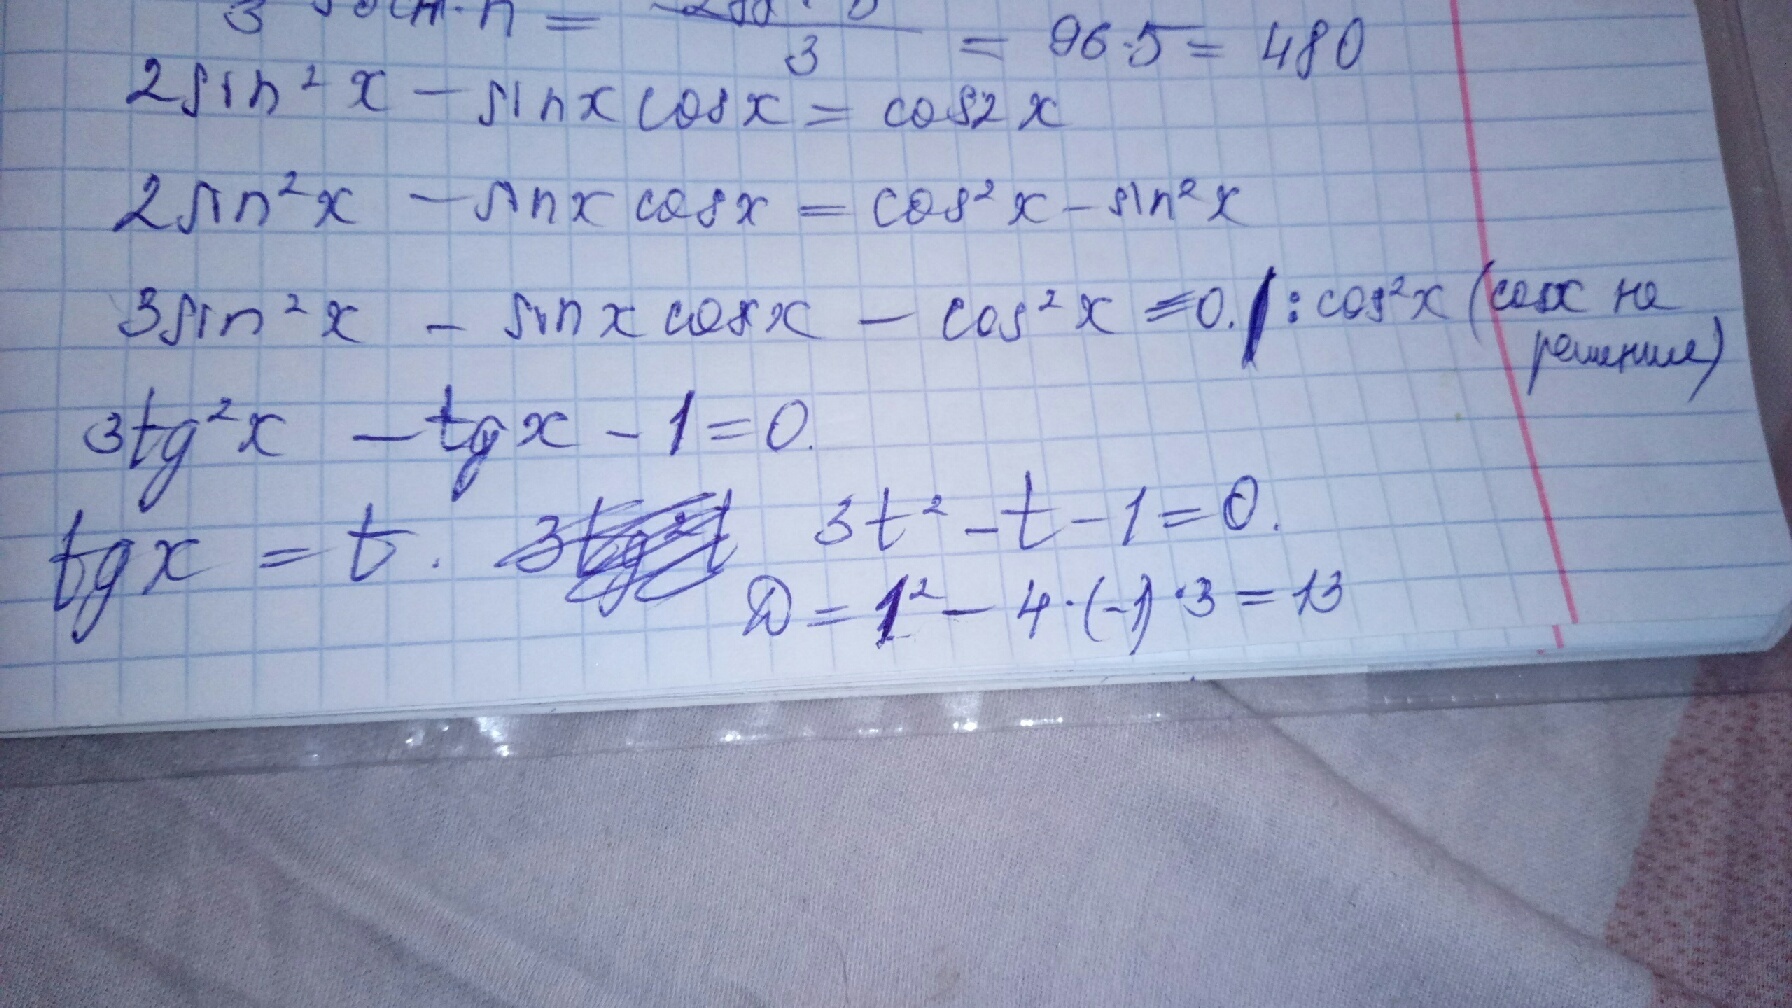 3 · h = 3 = 96·5 = 480
2sin²x – sinx cosx = cos2x
2sin²x – sinx cosx = cos²x – sin²x
3sin²x – sinx cosx – cos²x = 0. | : cos²x (cosx не решение)
3tg²x – tgx – 1 = 0.
tgx = t. 3t² – t – 1 = 0.
D = 1² – 4·(-1)·3 = 13